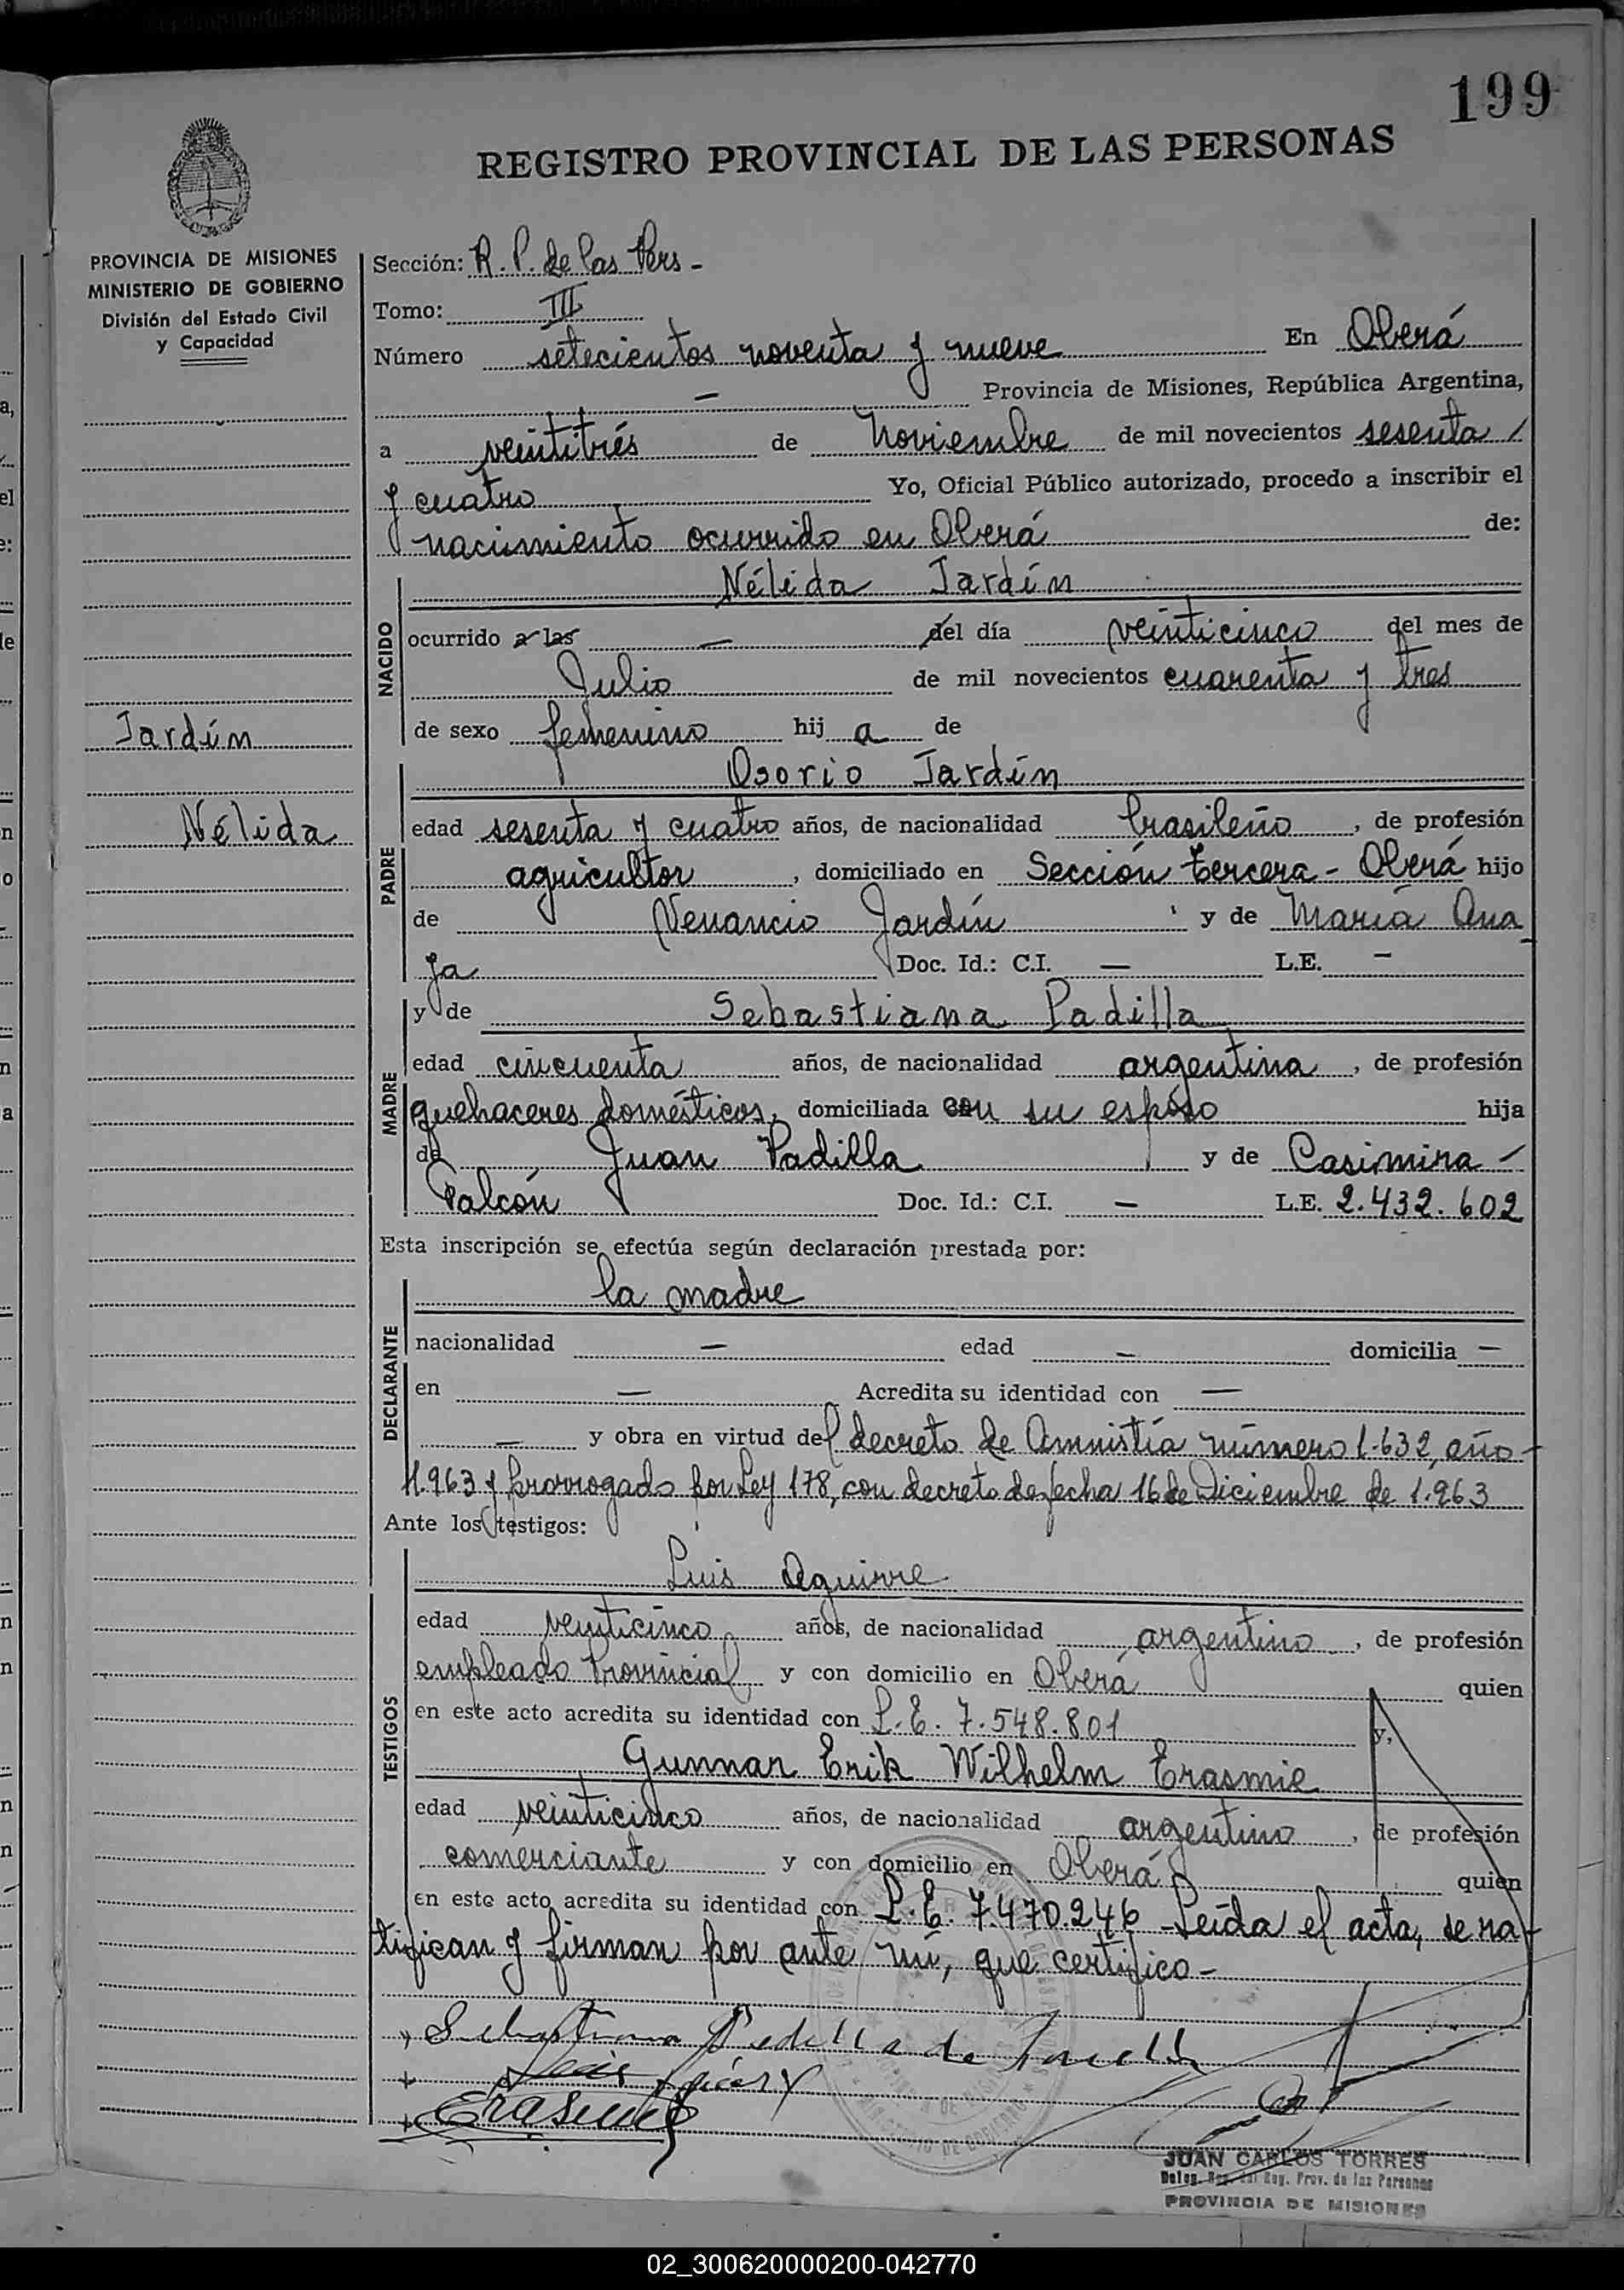 199
REGISTRO PROVINCIAL DE LAS PERSONAS
PROVINCIA DE MISIONES
MINISTERIO DE GOBIERNO
División del Estado Civil
y Capacidad
Sección: R. P. de las Pers -
Tomo: III
Número setecientos noventa y nueve En Oberá
— Provincia de Misiones, República Argentina,
a veintitrés de Noviembre de mil novecientos sesenta /
y cuatro Yo, Oficial Público autorizado, procedo a inscribir el
nacimiento ocurrido en Oberá de:
NACIDO
Nélida Jardín
ocurrido a las — del día veinticinco del mes de
Julio de mil novecientos cuarenta y tres
de sexo femenino hij a de
Jardín
Nélida
PADRE
Osorio Jardín
edad sesenta y cuatro años, de nacionalidad brasileño, de profesión
agricultor, domiciliado en Sección tercera - Oberá hijo
de Venancio Jardín y de María Ana
Ja Doc. Id.: C.I. — L.E. —
MADRE
y de Sebastiana Padilla
edad cincuenta años, de nacionalidad argentina, de profesión
quehaceres domésticos, domiciliada con su esposo hija
de Juan Padilla y de Casimira -
Falcón Doc. Id.: C.I. — L.E. 2.432.602
Esta inscripción se efectúa según declaración prestada por:
DECLARANTE
la madre
nacionalidad — edad — domicilia —
en — Acredita su identidad con —
— y obra en virtud del decreto de Amnistía número 1.632, año -
1.963 y prorrogado por Ley 178, con decreto de fecha 16 de Diciembre de 1.963
Ante los testigos:
TESTIGOS
Luis Aguirre
edad veinticinco años, de nacionalidad argentino, de profesión
empleado Provincial y con domicilio en Oberá quien
en este acto acredita su identidad con L.E. 7.548.801 y,
Gunnar Erik Wilhelm Erasmie
edad veinticinco años, de nacionalidad argentino, de profesión
comerciante y con domicilio en Oberá quien
en este acto acredita su identidad con L.E. 7.470.246 - Leída el acta, se ra-
tifican y firman por ante mí, que certifico -
Sebastiana Padilla de
Erasmie
JUAN CARLOS TORRES
Deleg. Reg. del Reg. Prov. de las Personas
PROVINCIA DE MISIONES
02_300620000200-042770